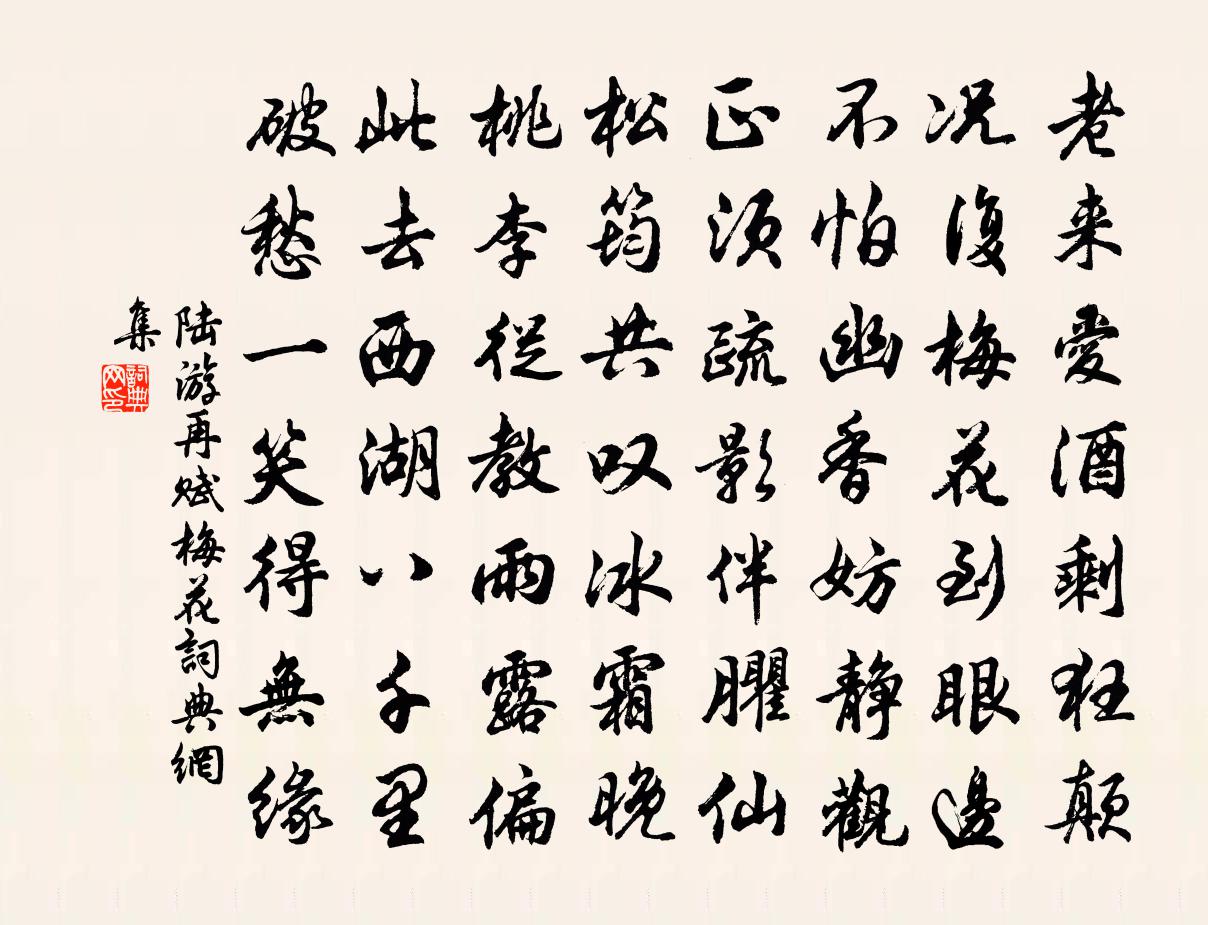 老来愛酒剩狂颠
况復梅花到眼邊
不怕幽香妨静觀
正须疏影伴臞仙
松筠共叹冰霜晚
桃李從教雨露偏
此去西湖八千里
破愁一笑得無緣
陆游再赋梅花詞典網
集
詞典
网印